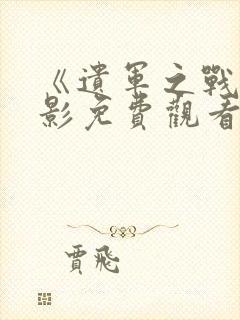 《遺軍之戰
影免費觀看
賈飛